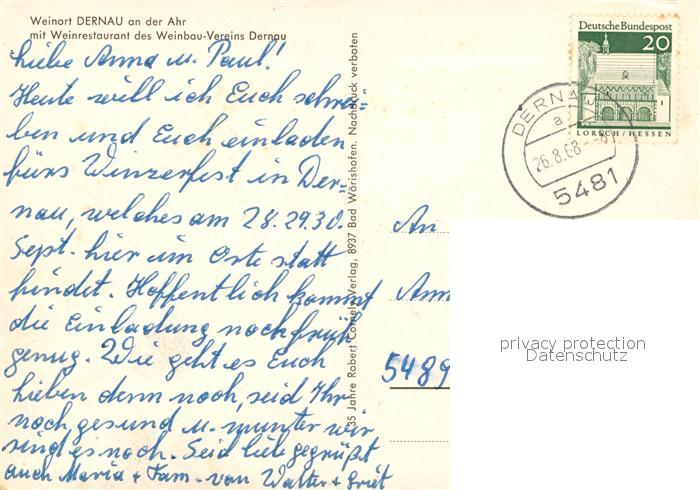 Weinort DERNAU an der Ahr
mit Weinrestaurant des Weinbau-Vereins Dernau
Liebe Anna u. Paul!
Heute will ich Euch schrei=
ben und Euch einladen
fürs Winzerfest in Der=
nau, welches am 28.29.30.
Sept. hier im Orte statt
findet. Hoffentlich kommt
die Einladung noch früh
genug. Wie geht es Euch
lieben denn noch, seid Ihr
noch gesund u. munter wir
sind es noch. Seid lieb gegrüßt
auch Maria + Fam. von Walter + Griet
35 Jahre Robert Cornely Verlag, 8937 Bad Wörishofen. Nachdruck verboten
Deutsche Bundespost
20
LORSCH/HESSEN
DERNAU
a
26.8.68
5481
An
Ann
5489
privacy protection
Datenschutz